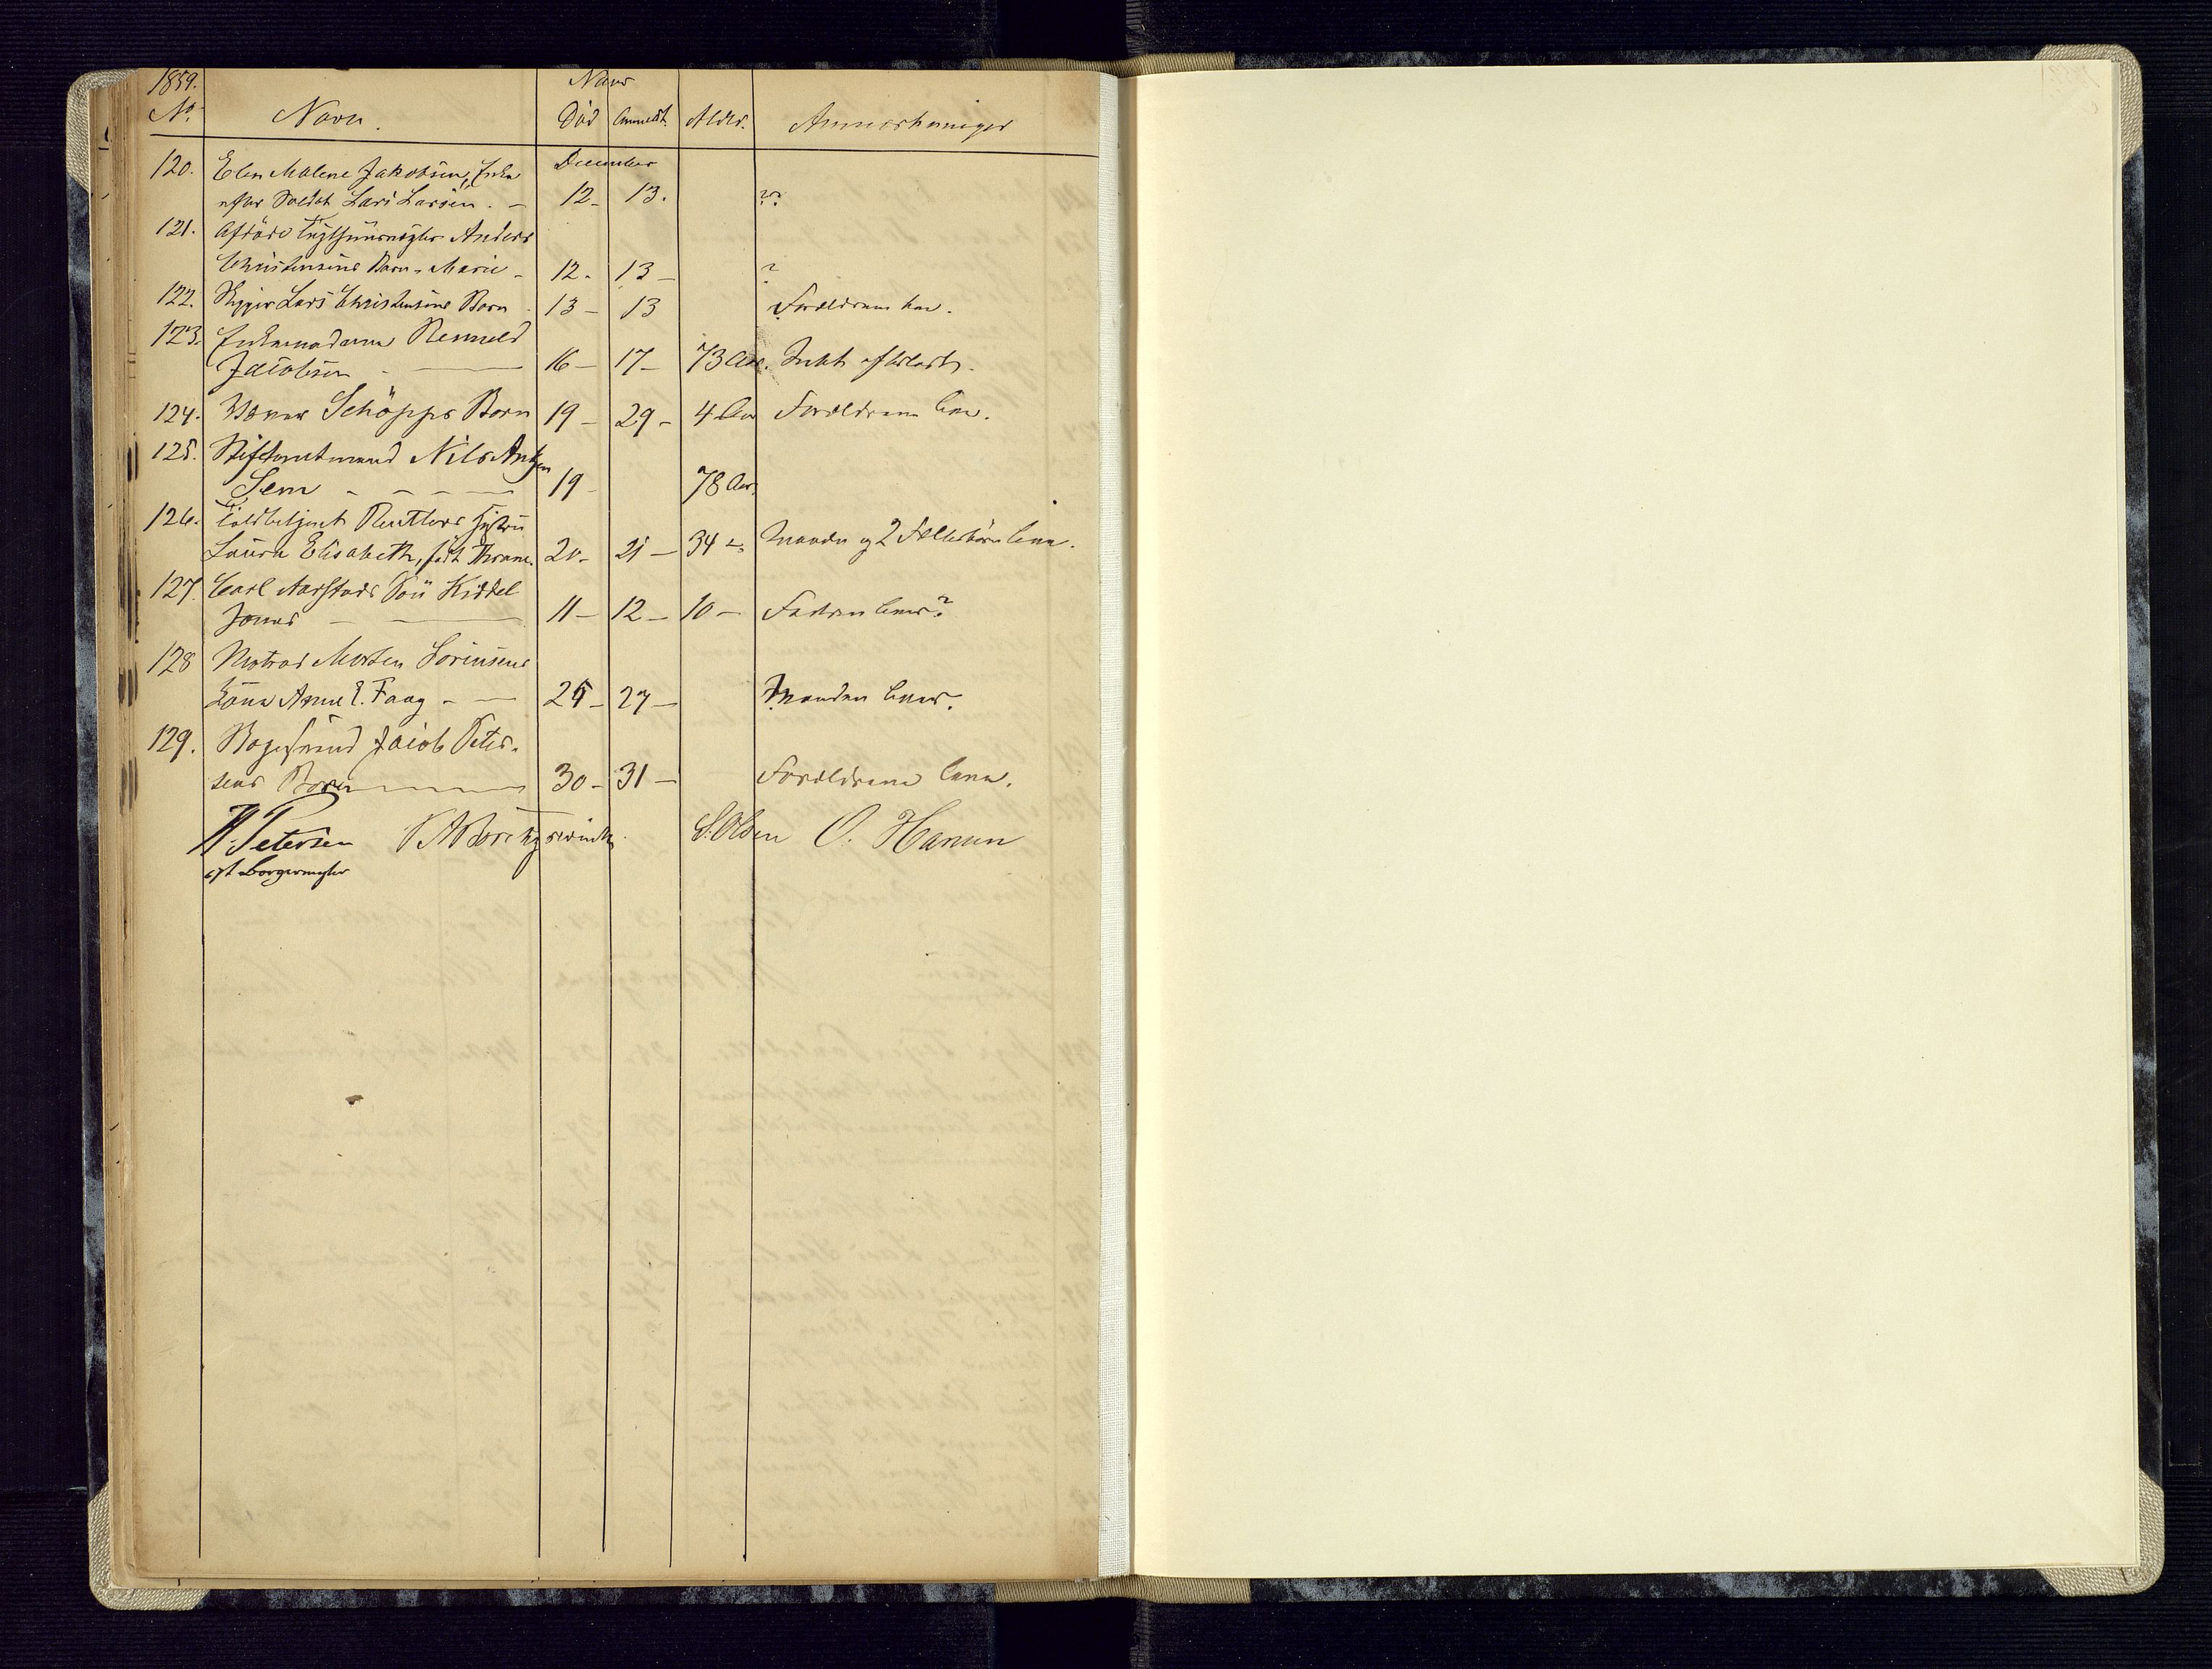 1859.
No. Navn. Naar Død Anmeldt. Alder. Anmærkninger
December
120. Elen Malene Jakobsen, Enke
efter Soldat Lars Larsen. — 12- 13. ??
121. Afdøde Anders
Christensens Barn Marie - 12- 13- ?
122. Skipper Lars Christensens Barn 13- 13 Forældrene lever.
123. Enkemadame Remmeld
Jacobsen - — 16- 17- 73 Aar. Intet efterladt.
124. Schöpps Barn 19- 29- 4 Aar Forældrene lever.
125. Stiftamtmand Nils Antzn
Sem - - - — 19- 78 Aar.
126. Toldbetjent Reutlers Hustru
Laura Elisabeth, født Thrane. 20- 21- 34 Manden og 2 Fællesbørn lever.
127. Carl Aarstads Søn Kiddel
Jonas — — 11- 12- 10- Faderen lever?
128 Matros Morten Sørensens
Kone Anne E. Faag - — 25- 27- Manden lever.
129. Jacob Peter-
sens Barn — 30- 31- Forældrene lever.
Petersen S. Olsen O. Hansen
cst Borgermester